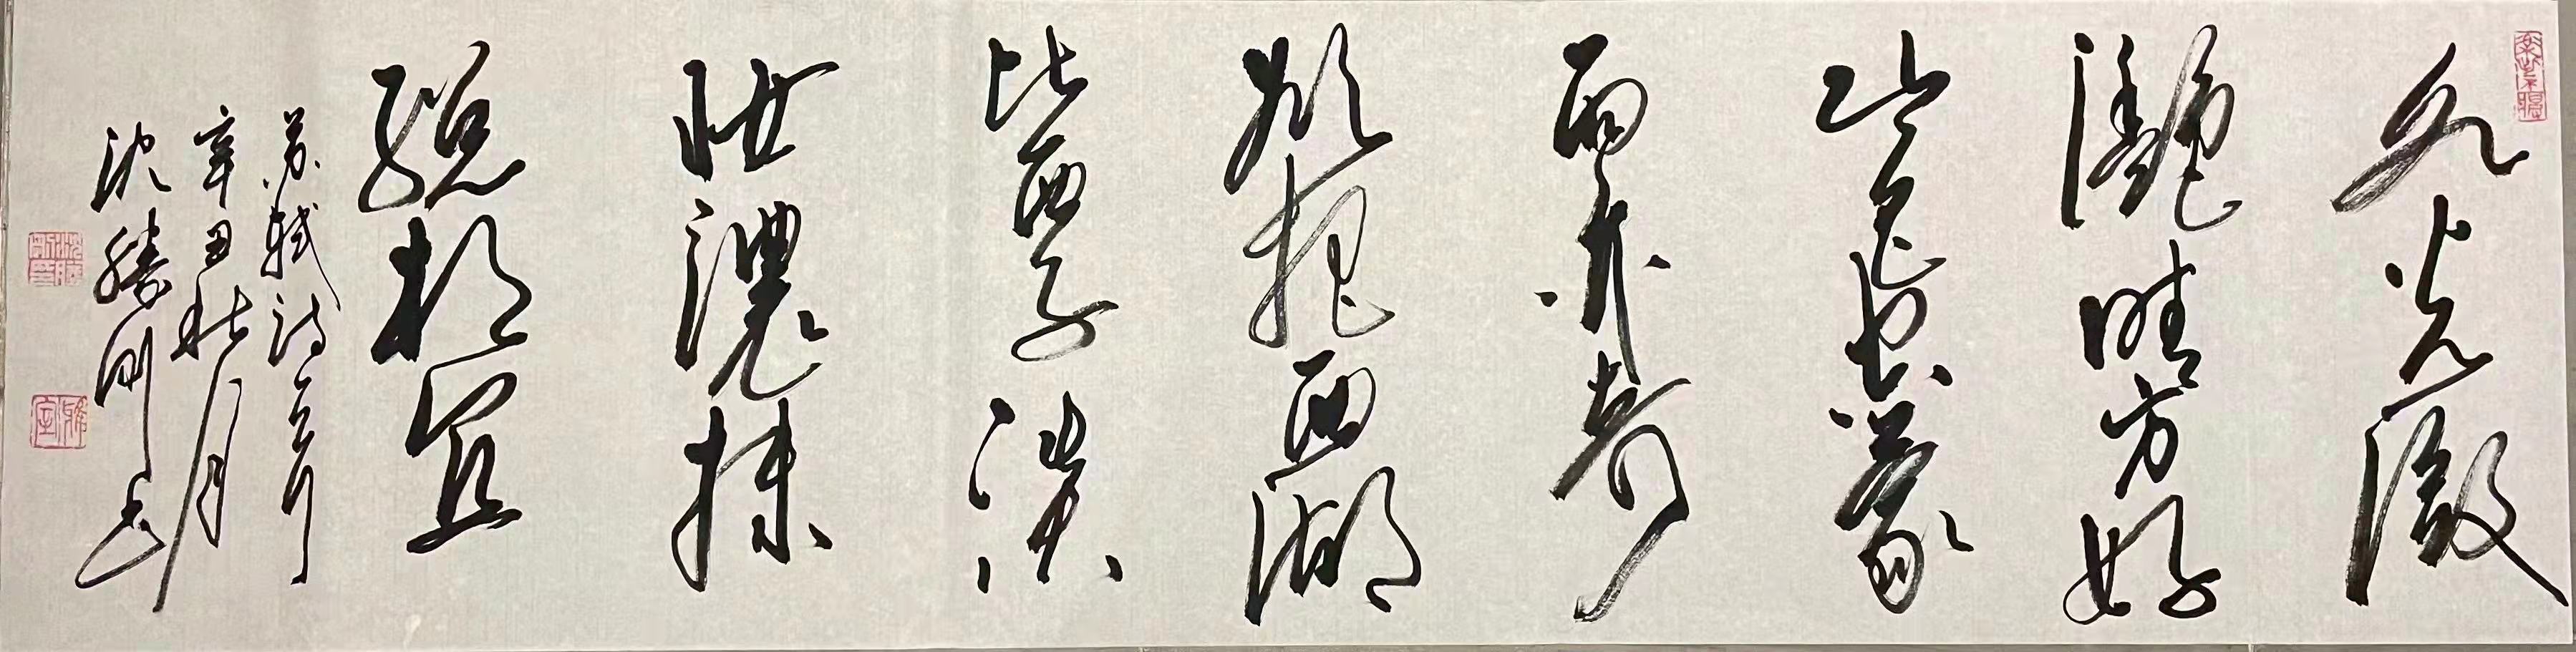 水光瀲
灩晴方好
山色空蒙
雨亦奇
欲把西湖
比西子淡
妝濃抹
總相宜
苏轼诗一首
辛丑秋月
沈勝书